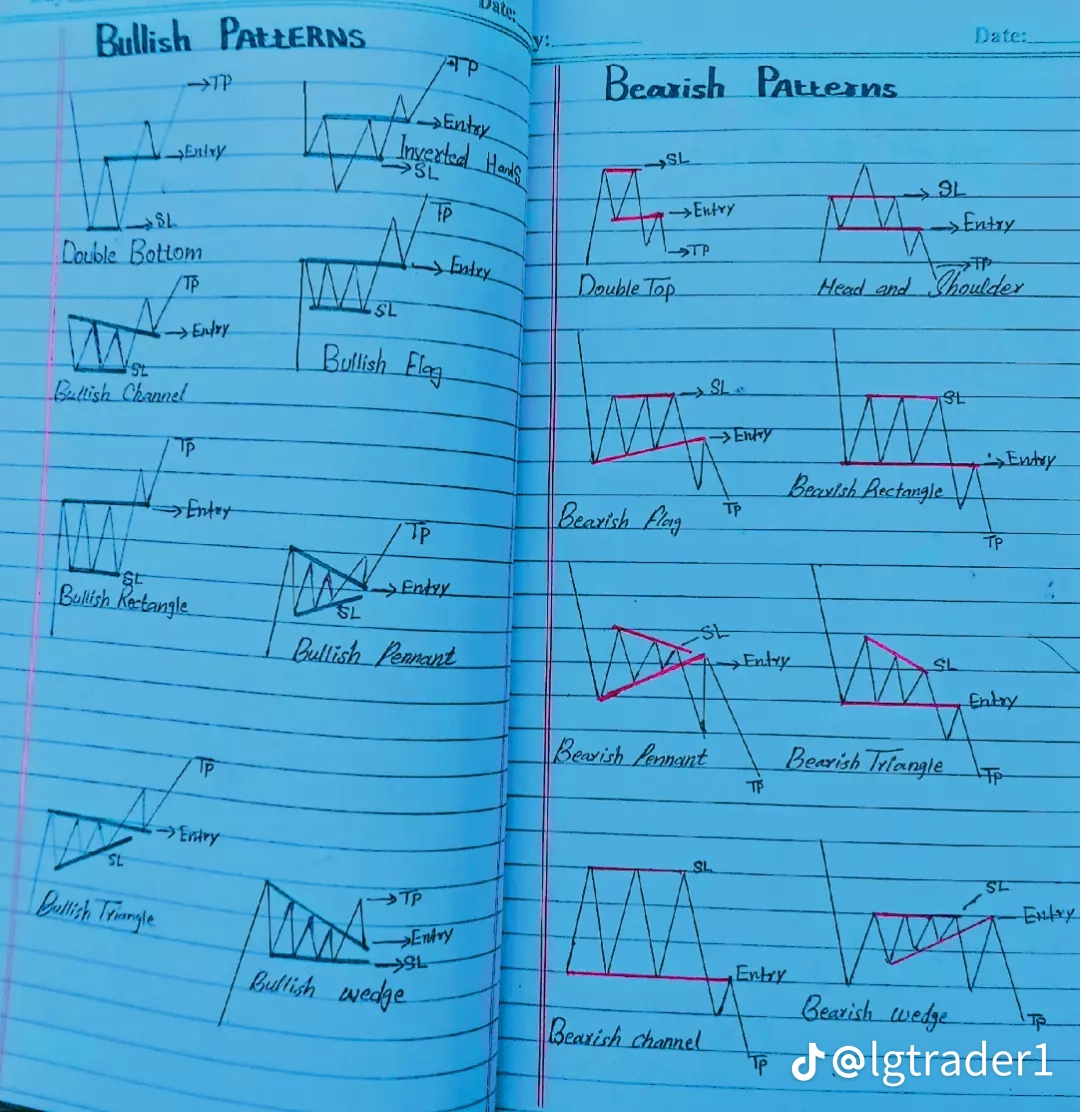 Date:
Bullish PATTERNS
TP
Entry
SL
Double Bottom
TP
Entry
SL
TP
Entry
SL
Bullish Flag
TP
Entry
SL
Bullish Channel
TP
Entry
SL
Bullish Rectangle
TP
Entry
SL
Bullish Pennant
TP
Entry
SL
Bullish Triangle
TP
Entry
SL
Bullish wedge
y:
Date:
Bearish Patterns
SL
Entry
TP
Double Top
SL
Entry
TP
Head and Shoulder
SL
Entry
TP
Bearish Flag
SL
Entry
TP
Bearish Rectangle
SL
Entry
TP
Bearish Pennant
SL
Entry
TP
Bearish Triangle
SL
Entry
TP
Bearish channel
SL
Entry
TP
Bearish wedge
@lgtrader1